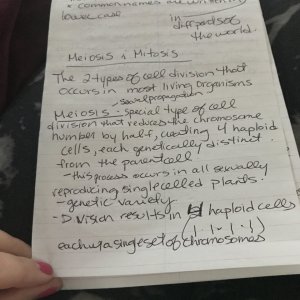 * common names are written in
lowercase
in
diff parts of
the world.
Meiosis & Mitosis
The 2 types of cell division that
occurs in most living organisms
→ sexual propagation
Meiosis: special type of cell
division that reduces the chromosome
number by half, creating 4 haploid
cells, each genetically distinct
from the parent cell
- this process occurs in all sexually
reproducing single celled plants.
- genetic variety
- Division results in 4 haploid cells
(1·1·1·1)
each w/ a single set of chromosomes